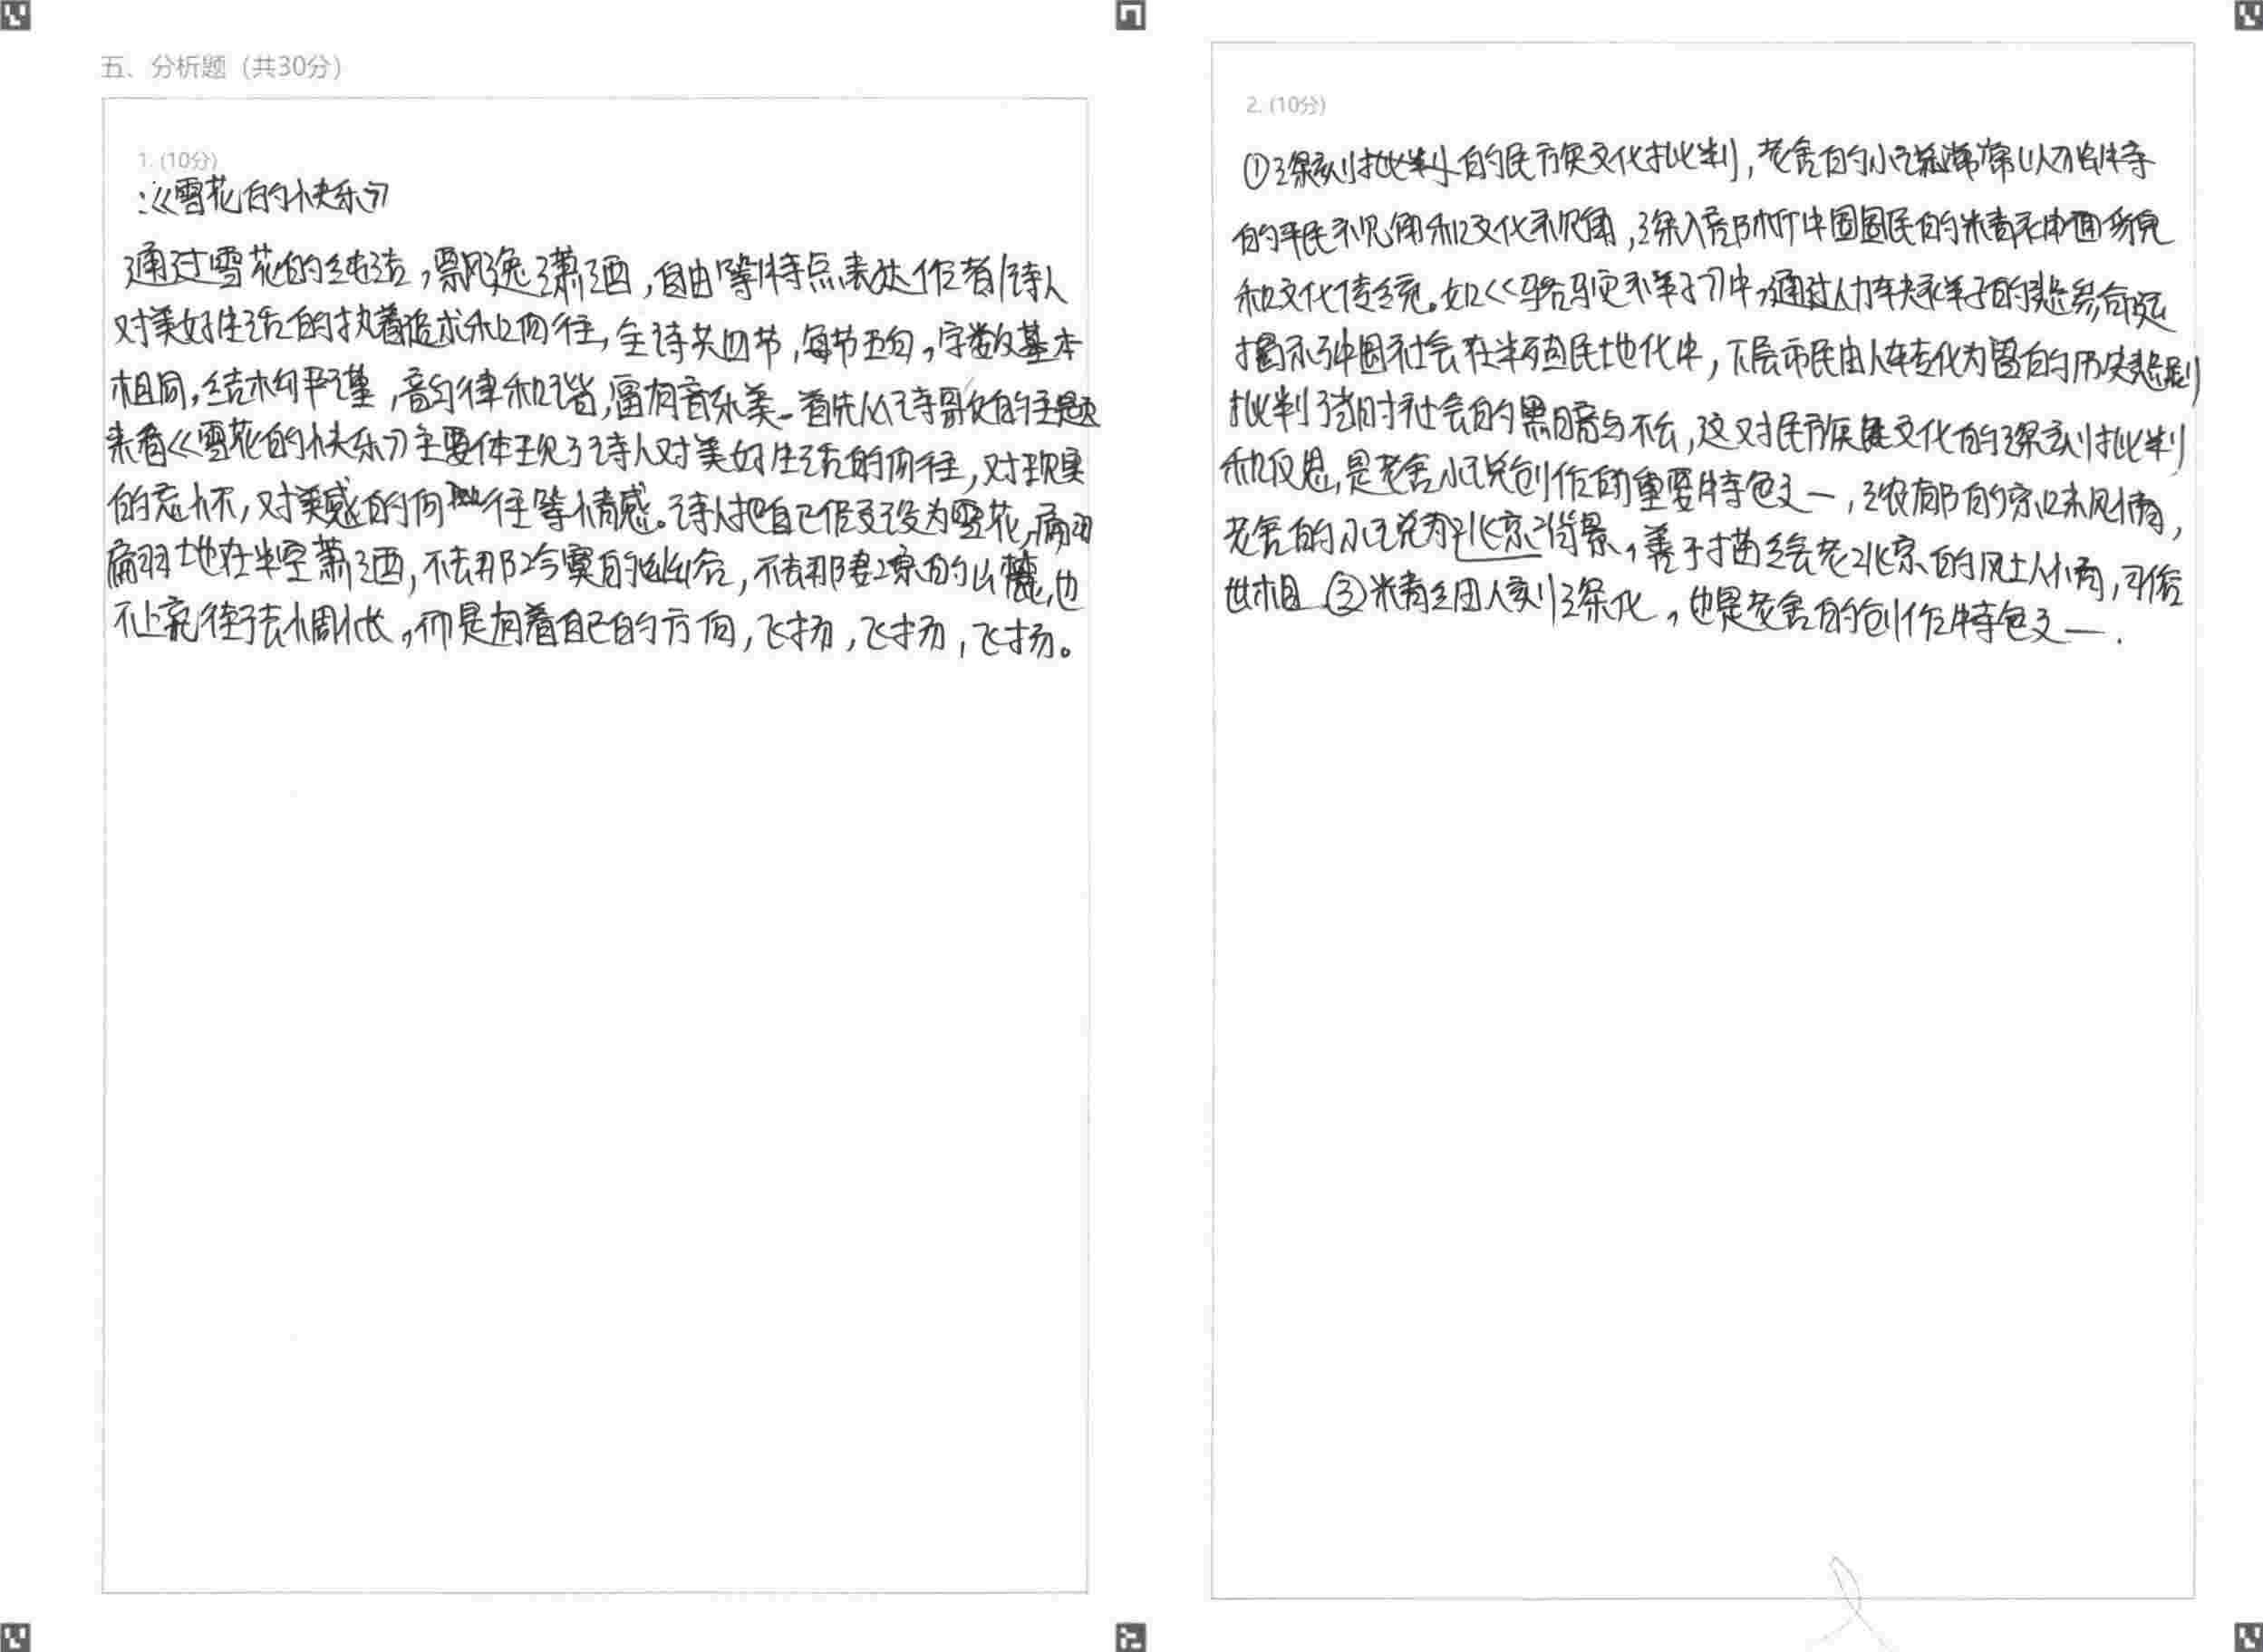 五、分析题（共30分）
1. (10分)
：《雪花的快乐》
通过雪花的纯洁，飘逸潇洒，自由等特点表达作者/诗人
对美好生活的执着追求和向往，全诗共四节，每节五句，字数基本
相同，结构严谨，音韵律和谐，富有音乐美。首先从诗歌的主题
来看《雪花的快乐》主要体现了诗人对美好生活的向往，对现实
的忘怀，对美感的向往等情感。诗人把自己假设为雪花，翩翩
翩翩地在半空萧洒，不去那冷寞的幽谷，不去那凄凉的山麓，也
不上荒街去惆怅，而是有着自己的方向，飞扬，飞扬，飞扬。
2. (10分)
①深刻批判的民族文化批判，老舍的小说常常以独特
的平民视角和文化视角，深入剖析中国国民的精神面貌
和文化传统。如《骆驼祥子》中，通过人力车夫祥子的悲惨命运
揭示了中国社会在半殖民地化中，下层市民由人转化为兽的历史悲剧
批判了当时社会的黑暗与不公，这对民族文化的深刻批判
和反思，是老舍小说创作的重要特色之一，浓郁的京味风情，
老舍的小说为北京背景，善于描绘老北京的风土人情，习俗
世相 ③精细人刻深化，也是老舍的创作特色之一.